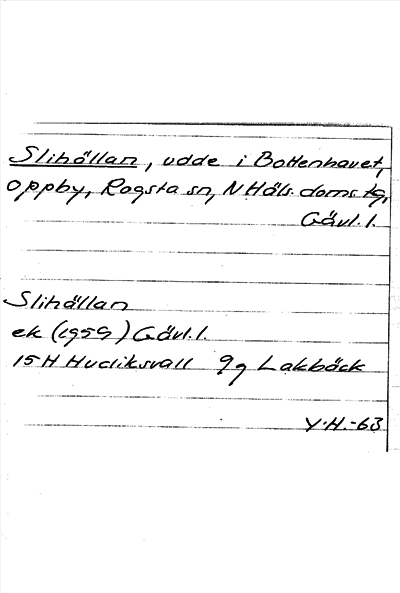 Slihällan, udde i Bottenhavet,
Oppby, Rogsta sn, N Häls. doms tg,
Gävl. l.
Slihällan
ek (1959) Gävl. l.
15H Hudiksvall 9g Lakbäck
Y.H.-63